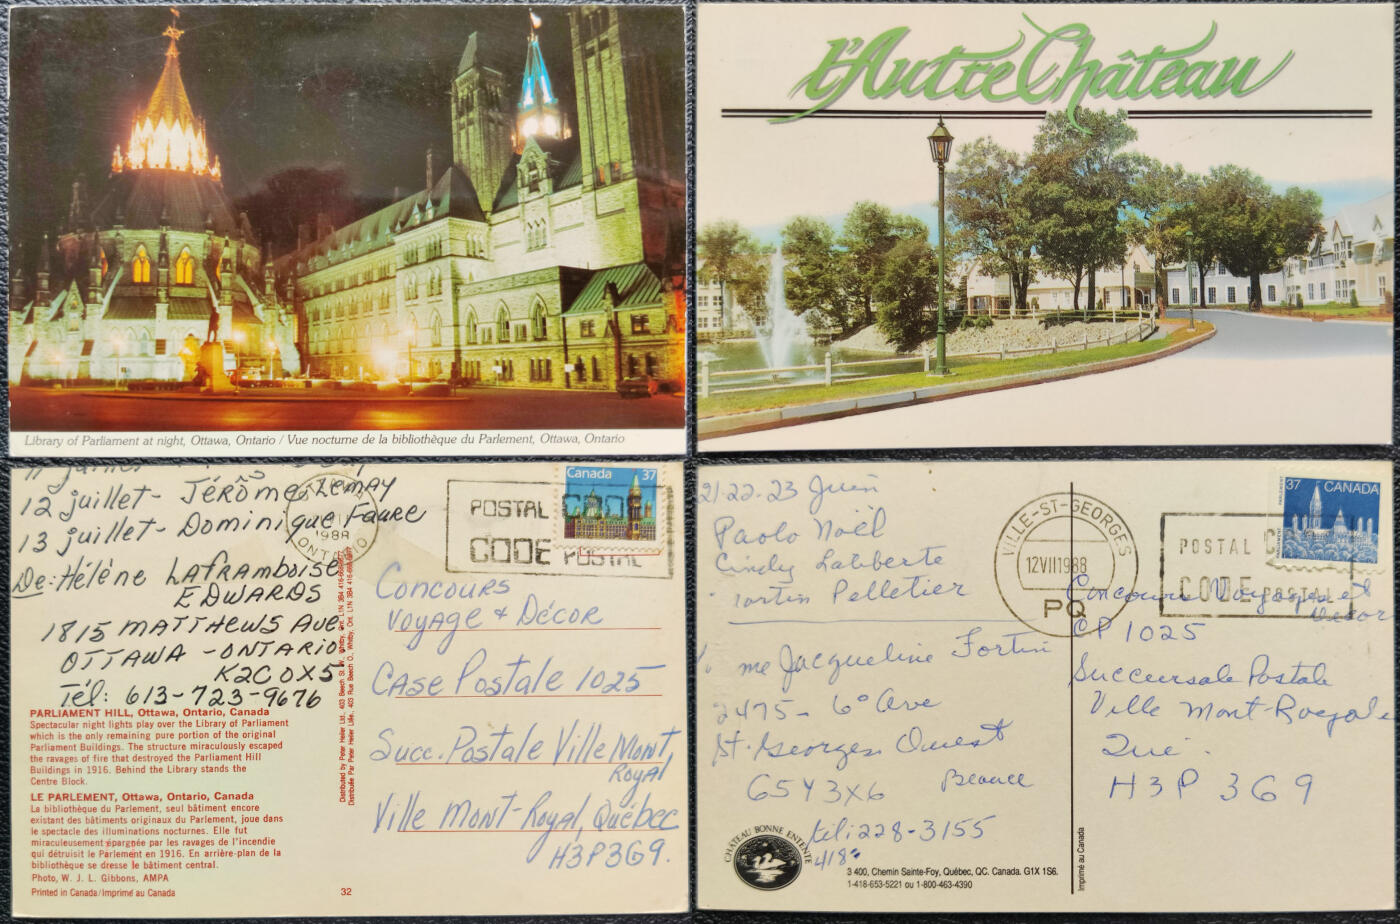 Library of Parliament at night, Ottawa, Ontario / Vue nocturne de la bibliothèque du Parlement, Ottawa, Ontario
l'Autre Château
12 juillet - JÉRÔme Lemay
13 juillet - Dominique Faure
De: Hélène LAframboise
EDWARDS
1815 MATTHEWS Ave
OTTAWA - ONTARIO
K2C OX5
Tél: 613-723-9676
PARLIAMENT HILL, Ottawa, Ontario, Canada
Spectacular night lights play over the Library of Parliament
which is the only remaining pure portion of the original
Parliament Buildings. The structure miraculously escaped
the ravages of fire that destroyed the Parliament Hill
Buildings in 1916. Behind the Library stands the
Centre Block.
LE PARLEMENT, Ottawa, Ontario, Canada
La bibliothèque du Parlement, seul bâtiment encore
existant des bâtiments originaux du Parlement, joue dans
le spectacle des illuminations nocturnes. Elle fut
miraculeusement épargnée par les ravages de l'incendie
qui détruisit le Parlement en 1916. En arrière-plan de la
bibliothèque se dresse le bâtiment central.
Photo, W. J. L. Gibbons, AMPA
Printed in Canada/Imprimé au Canada
32
Distributed by Peter Heiler Ltd., 403 Beech St. W., Whitby, Ont. L1N 3B4
Distribuée Par Peter Heiler Ltée., 403 Rue Beech O., Whitby, Ont. L1N 3B4
1988
ONTARIO
POSTAL CODE
CODE POSTAL
Canada 37
Concours
Voyage & Décor
Case Postale 1025
Succ. Postale Ville Mont
Royal
Ville Mont-Royal, Québec
H3P3G9.
21-22-23 Juin
Paolo Noël
Cindy Laliberte
Pelletier
me Jacqueline Fortin
2475 - 6° Ave
St-Georges Ouest
G5Y3X6 Beauce
tel: 228-3155
418
CHÂTEAU BONNE ENTENTE
3 400, Chemin Sainte-Foy, Québec, QC. Canada. G1X 1S6.
1-418-653-5221 ou 1-800-463-4390
Imprimé au Canada
VILLE-ST-GEORGES
12 VII 1988
PQ
POSTAL
CODE POSTAL
37 CANADA
Concours Voyages et
Décor
CP 1025
Succursale Postale
Ville Mont-Royale
Qué.
H3P 3G9